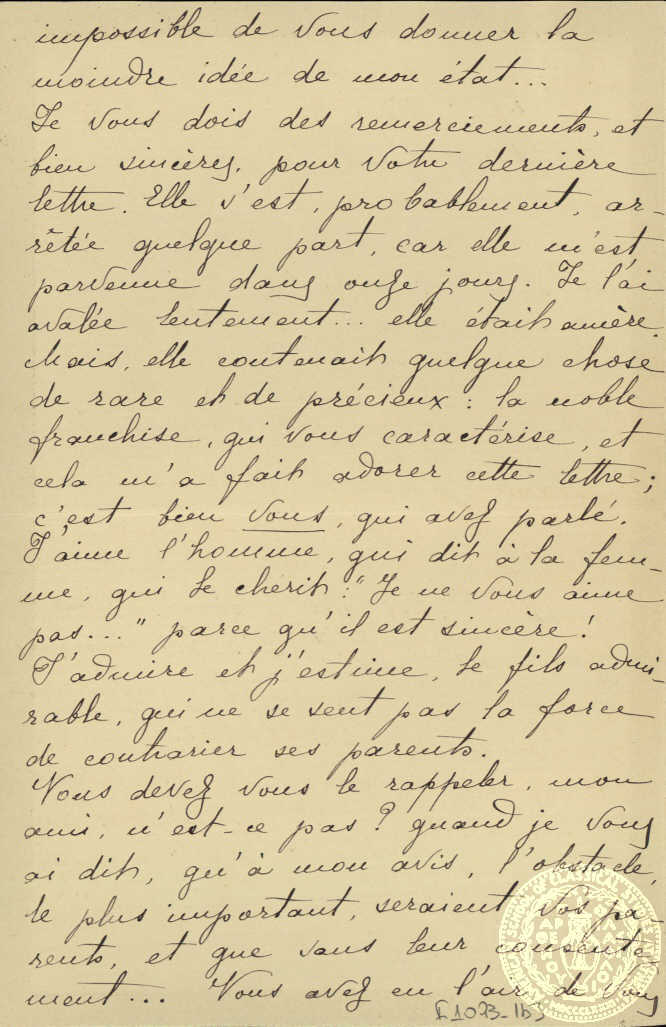 impossible de vous donner la
moindre idée de mon état...
Je vous dois des remerciements, et
bien sincères, pour votre dernière
lettre. Elle s'est, probablement, ar-
rêtée quelque part, car elle m'est
parvenue dans onze jours. Je l'ai
avalée lentement... elle était amère.
Mais, elle contenait quelque chose
de rare et de précieux : la noble
franchise, qui vous caractérise, et
cela m'a fait adorer cette lettre ;
c'est bien vous, qui avez parlé.
J'aime l'homme, qui dit à la fem-
me, qui le chérit : "Je ne vous aime
pas..." parce qu'il est sincère !
J'admire et j'estime, le fils admi-
rable, qui ne se sent pas la force
de contrarier ses parents.
Vous devez vous le rappeler, mon
ami, n'est-ce pas ? quand je vous
ai dit, qu'à mon avis, l'obstacle,
le plus important, seraient vos pa-
rents, et que sans leur consente-
ment... Vous avez eu l'air de vous